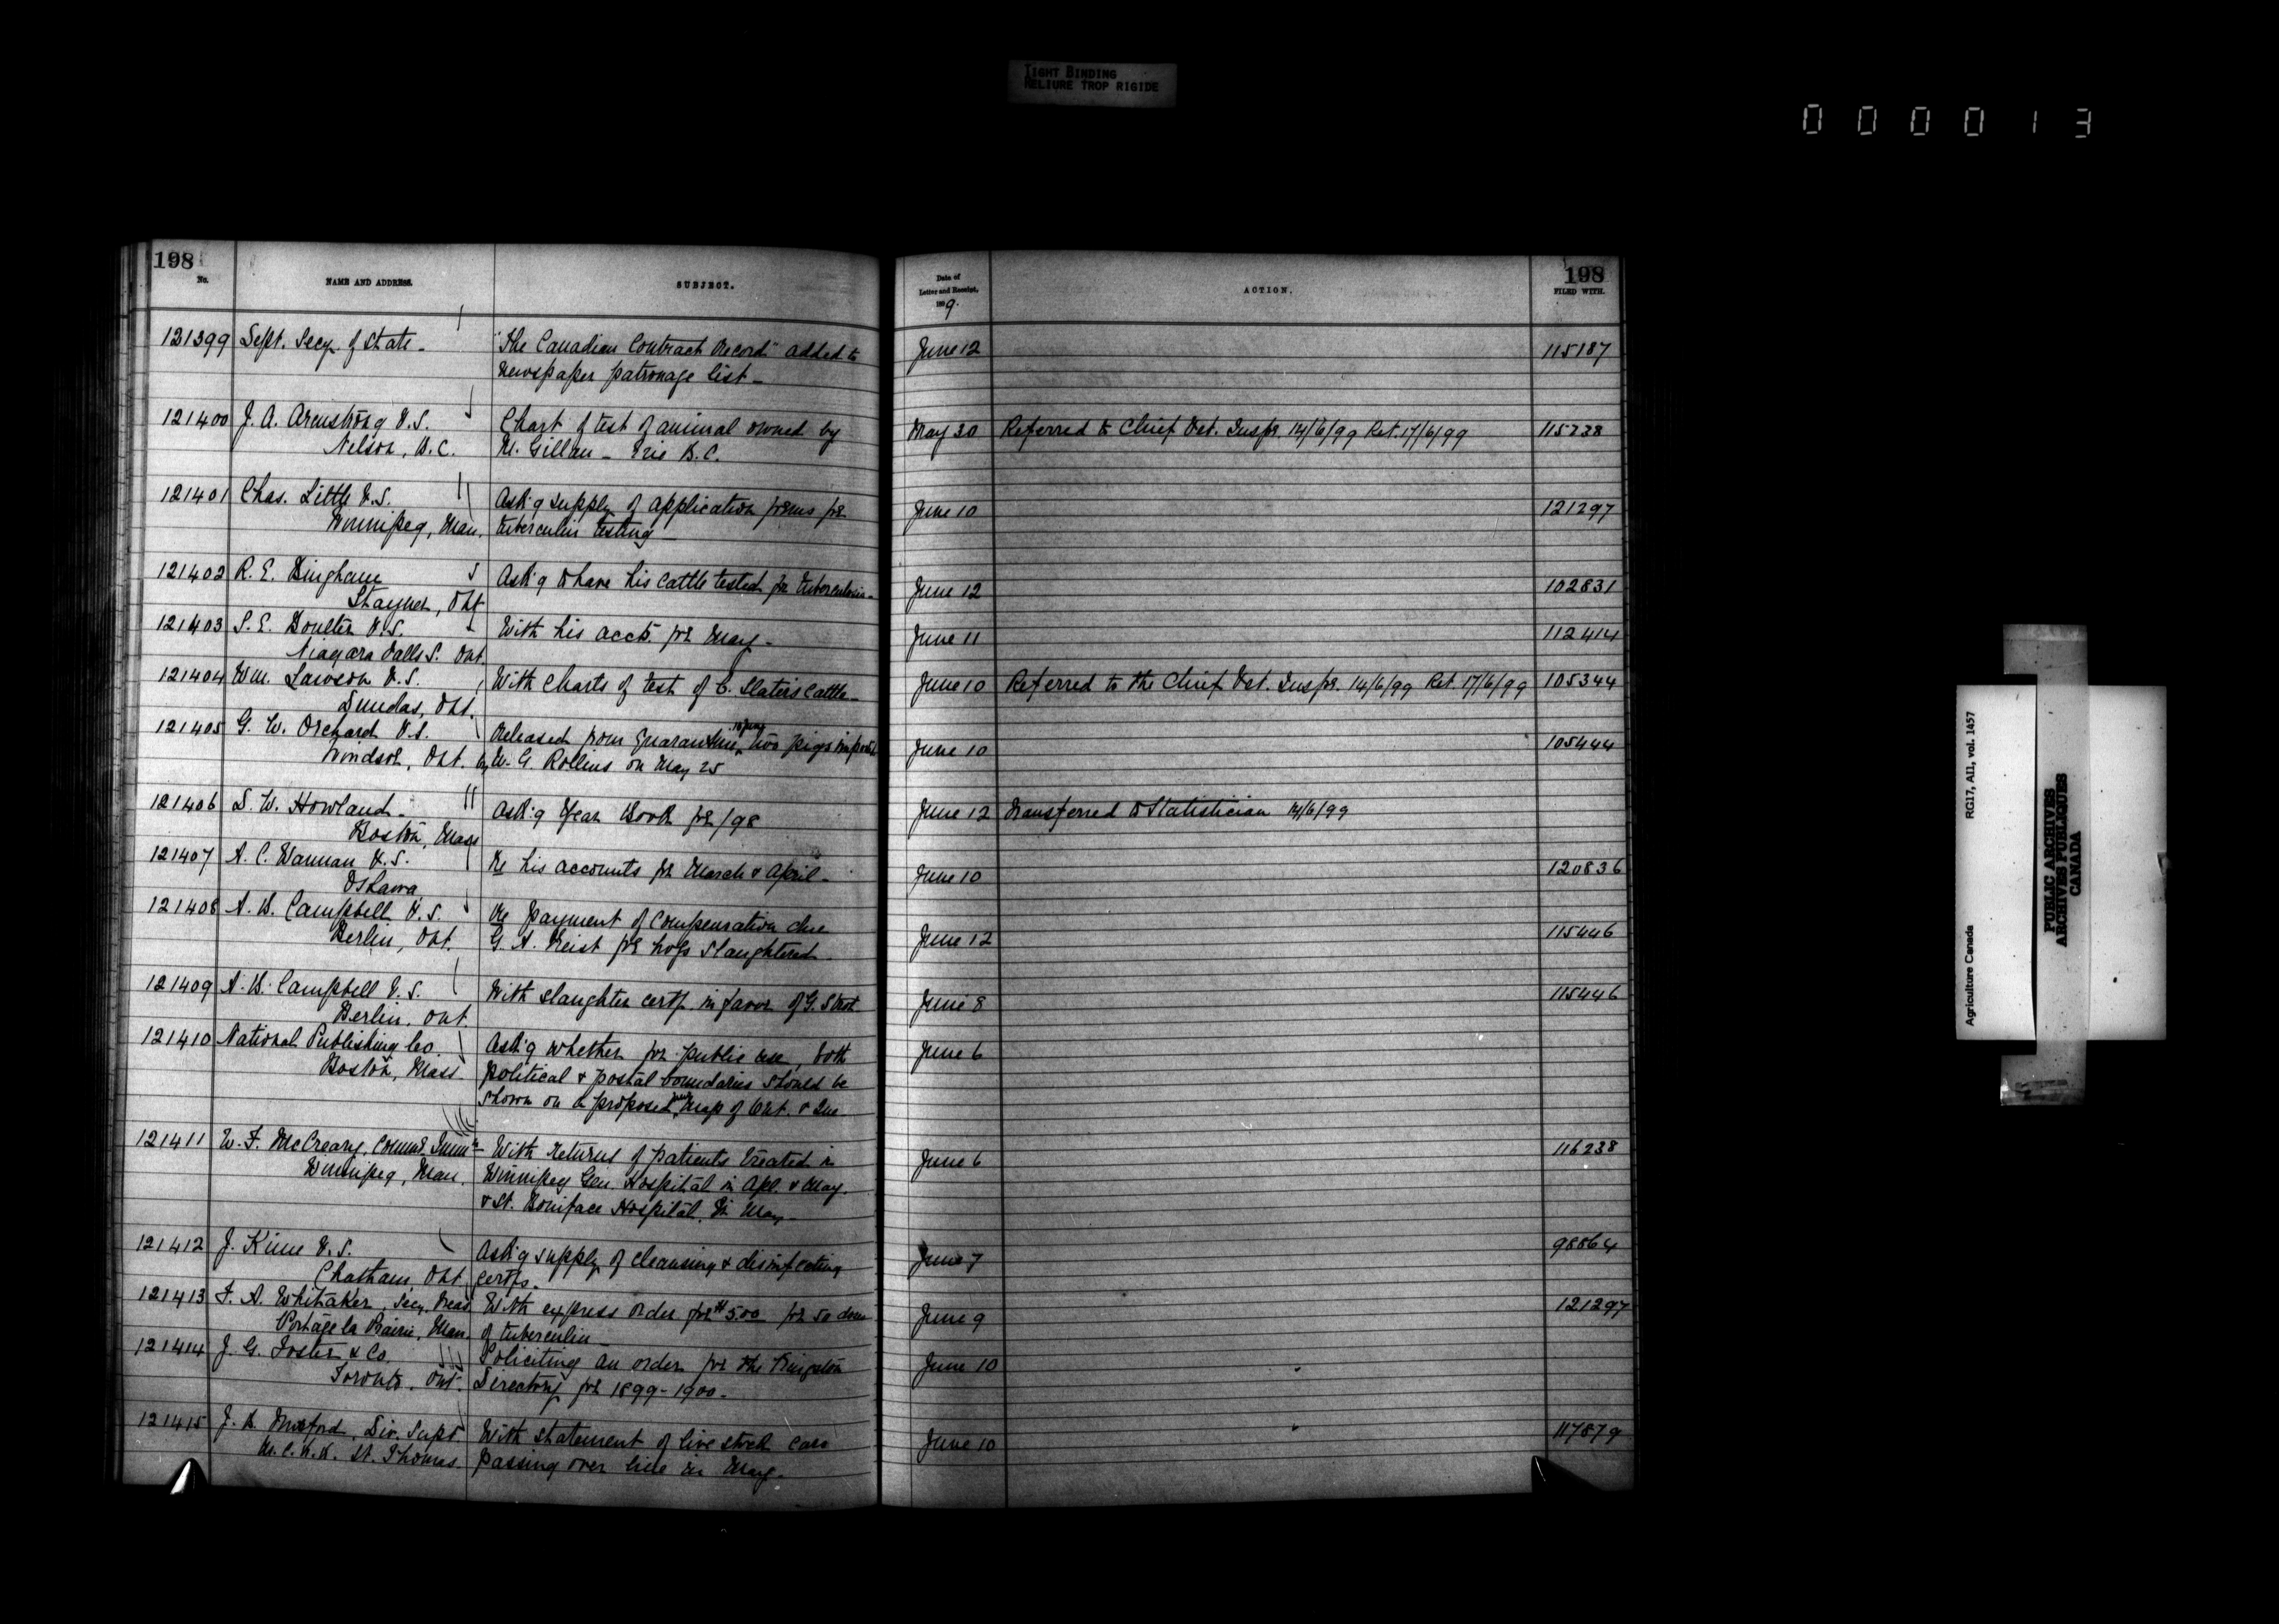 TIGHT BINDING
RELIURE TROP RIGIDE
000013
198
No.
NAME AND ADDRESS.
SUBJECT.
Date of
Letter and Receipt,
1899.
ACTION.
198
FILED WITH.
121399 Dept. Secy. of State - "The Canadian Contract Record" added to June 12 115187
Newspaper patronage list -
121400 J. A. Armstrong V.S. Chart of test of animal owned by May 30 Referred to Chief Vet. Inspr. 14/6/99 Ret. 17/6/99 115238
Nelson, B.C. M. Gillan - Erie B.C.
121401 Chas. Little V.S. Ask'g supply of application forms for June 10 121297
Winnipeg, Man. tuberculin testing -
121402 R. E. Bingham Ask'g to have his cattle tested for tuberculosis - June 12 102831
Stayner, Ont
121403 S. E. Boulter V.S. With his accts. for May - June 11 112414
Niagara Falls S. Ont.
121404 Wm. Lawson V.S. With charts of test of C. Slater's cattle - June 10 Referred to the Chief Vet. Inspr. 14/6/99 Ret. 17/6/99 105344
Dundas, Ont.
121405 G. W. Orchard V.S. Released from quarantine two pigs imported June 10 105444
Windsor, Ont. by W. G. Rollins on May 25
121406 S. W. Howland - Ask'g Year Book for /98 June 12 Transferred to Statistician 14/6/99
Boston, Mass
121407 A. C. Wannan V.S. Re his accounts for March & April - June 10 120836
Oshawa
121408 A. W. Campbell V.S. Re payment of compensation due June 12 115446
Berlin, Ont. G. A. Reist for hogs slaughtered
121409 A. W. Campbell V.S. With slaughter certf. in favor of G. June 8 115446
Berlin, Ont.
121410 National Publishing Co. Ask'g whether for public use, both June 6
Boston, Mass political & postal boundaries should be
shown on a proposed new Map of Ont. & Que
121411 W. F. McCreary, Commr. Immn. - With returns of patients treated in June 6 116238
Winnipeg, Man. Winnipeg Gen. Hospital in Apl. & May.
& St. Boniface Hospital in May -
121412 J. Kime V.S. Ask'g supply of cleansing & disinfecting June 7 98864
Chatham, Ont certfs.
121413 F. A. Whitaker, Secy. Treas. With express order for $5.00 for 50 doses June 9 121297
Portage la Prairie, Man. of tuberculin -
121414 J. G. Foster & Co. Soliciting an order for the Kingston June 10
Toronto, Ont. Directory for 1899-1900 -
121415 J. B. Morford, Div. Supt With statement of live stock cars June 10 117879
M.C.R.R. St. Thomas passing over line in May -
Agriculture Canada RG17, AII, vol. 1457
PUBLIC ARCHIVES
ARCHIVES PUBLIQUES
CANADA